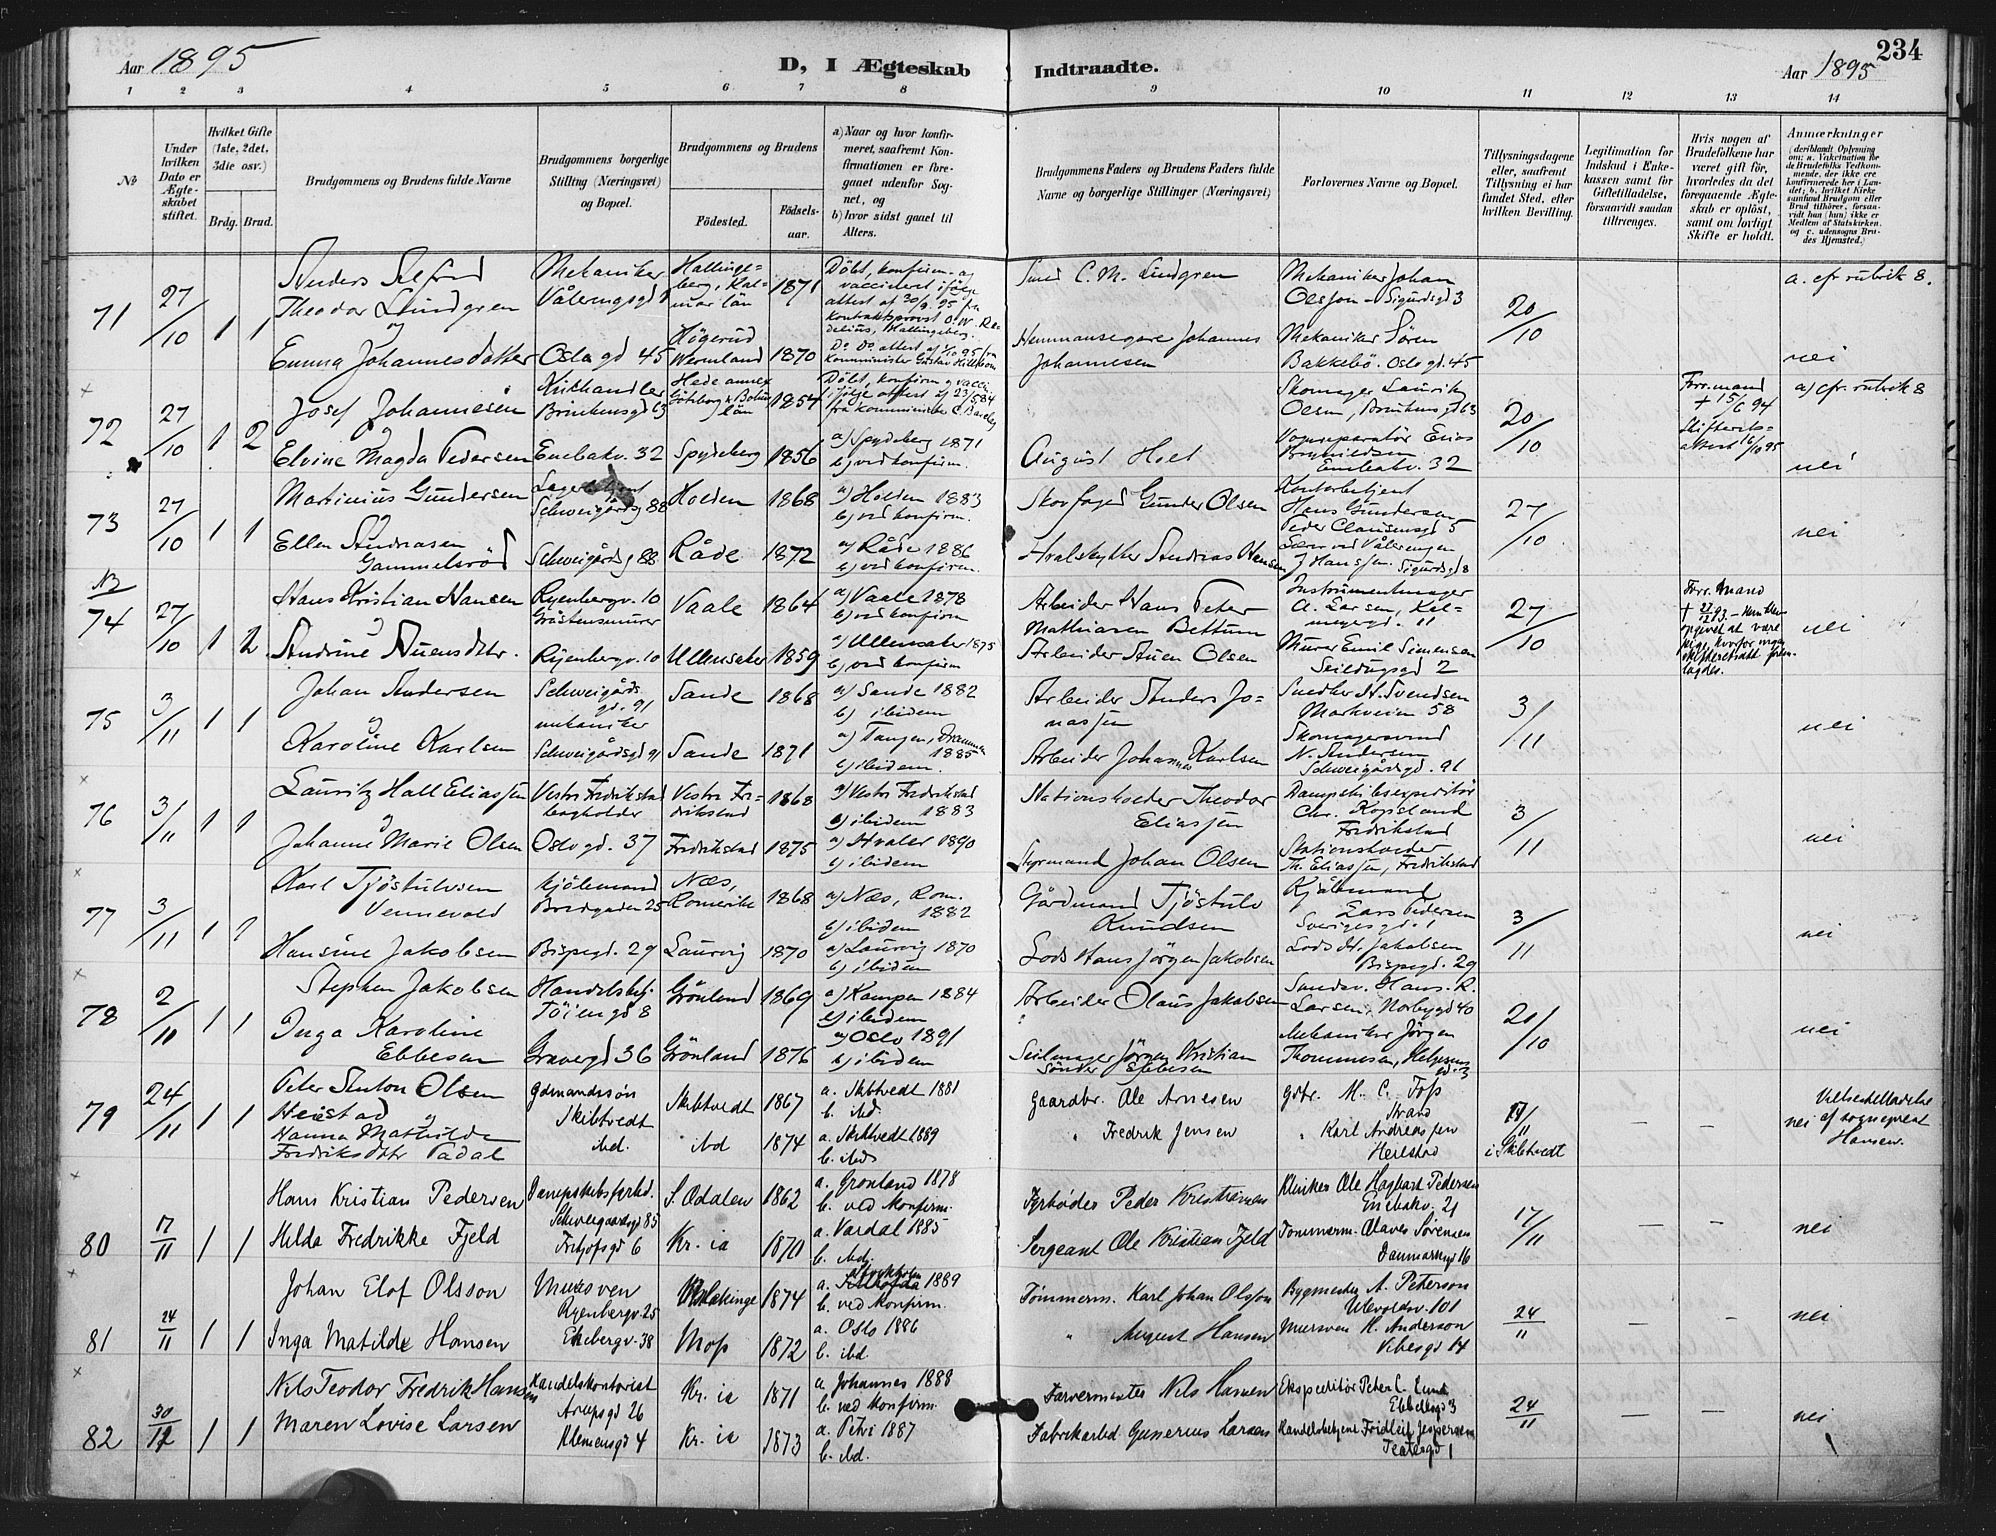 Aar 1895
D, I Ægteskab Indtraadte.
Aar 1895
234
1 2 3 4 5 6 7 8 9 10 11 12 13 14
№
Under hvilken Dato er Ægteskabet stiftet.
Hvilket Gifte (1ste, 2det, 3die osv.)
Brdg. Brud.
Brudgommens og Brudens fulde Navne
Brudgommens borgerlige Stilling (Næringsvei) og Bopæl.
Brudgommens og Brudens
Födested.
Födselsaar.
a) Naar og hvor konfirmeret, saafremt Konfirmationen er foregaaet udenfor Sognet, og
b) hvor sidst gaaet til Alters.
Brudgommens Faders og Brudens Faders fulde Navne og borgerlige Stillinger (Næringsvei)
Forlovernes Navne og Bopæl.
Tillysningsdagene eller, saafremt Tillysning ei har fundet Sted, efter hvilken Bevilling.
Legitimation for Indskud i Enkekassen samt for Giftetilladelse, forsaavidt saadan tiltrænges.
Hvis nogen af Brudefolkene har været gift för, hvorledes da det foregaaende Ægteskab er oplöst, samt om lovligt Skifte er holdt.
Anmærkninger (deriblandt Oplysning om: a. Vakcination for de Brudefolks Vedkommende, der ikke ere konfirmerede her i Landet; b. hvilket Kirkesamfund Brudgom eller Brud tilhörer, forsaavidt hun (han) ikke er Medlem af Statskirken, og c. udensogns Brudes Hjemsted.)
71 27/10 1 1
Anders Alfred Theodor Lundgren
og
Emma Johannesdatter
Mekaniker Våleringsgd
Oslogd 45
Hallingeberg, Kalmar län 1871
Högerud Wermland 1870
Döbt, konfirm. og vaccineret ifölge attest af 30/9 95 fra kontraktsprovst O. W. Redelius, Hallingeberg.
Do Do attest af 1/10 95 fra komminister Gustav
Smed C. M. Lindgren
Hemmansegare Johannes Johannesen
Mekaniker Johan Olsson - Sigurdsgd 3
Mekaniker Sören Bakkebö. Oslogd. 45
20/10
a. cfr rubrik 8.
nei
72 27/10 1 2
Josef Johannesen
og
Elvine Magda Pedersen
Brinkensgd 63
Enebakv. 32
Hede annex Göteborg & Bohus län 1854
Spydeberg 1856
Döbt, konfirm og vacci. ifölge attest af 23/5 84 fra komminister C.
a) Spydeberg 1871
b) ved konfirm.
August Holt
Skomager Laurits Olsen, Brinkensgd 63
Brynildsen Enebakv. 32
20/10
Forr. mand + 15/6 94
Skifteretsattest 16/10 95
a) cfr. rubrik 8
nei
73 27/10 1 1
Martinius Gundersen
og
Ellen Andreasen Gammelsröd
Schweigårdsg 88
Schweigårdsg 88
Holden 1868
Råde 1872
a) Holden 1883
b) ved konfirm.
a) Råde 1886
b) ved konfirm.
Skovfoged Gunder Olsen
Hvalskytter Andreas Hansen
Kontorbetjent Hans Gundersen Peder Clausensgd 5
Lærer ved Våleringen J. Hanssen. Sigurdsgd 8
27/10
nei
74 27/10 1 2
Hans Kristian Hansen
og
Andrine Auensdtr.
Ryenbergv. 10 Gråstensmurer
Ryenbergv. 10
Vaale 1864
Ullensaker 1859
a) Vaale 1878
b) ved konfirm
a) Ullensaker 1875
b) ved konfirm
Arbeider Hans Peter Mathiasen Bettum
Arbeider Auen Olsen
Instrumentmager A. Larsen, 11
Murer Emil Simensen Seildugsgd 2
27/10
Forr. Mand
nei
75 3/11 1 1
Johan Andersen
og
Karoline Karlsen
Schweigårds gd. 91 mekaniker
Schweigårdsgd 91
Sande 1868
Sande 1871
a) Sande 1882
b) ibidem
a) Tangen, Drammen 1885
b) ibidem.
Arbeider Anders Jonassen
Arbeider Johannes Karlsen
Snedker A. Svendsen Markveien 58
Skomagersvend N. Andersen Schweigårdsgd. 91
3/11
nei
76 3/11 1 1
Lauritz Hall Eliassen
og
Johanne Marie Olsen
Vestre Fredrikstad bogholder
Oslogd. 37
Vestre Fredrikstad 1868
Fredrikstad 1875
a) Vestre Fredrikstad 1883
b) ibidem
a) Hvaler 1890
b) ibidem
Stationsholder Theodor Eliassen
Styrmand Johan Olsen
Dampskibsexpeditör Chr. Kopsland Fredrikstad
Stationsholder Th. Eliassen, Fredrikstad
3/11
nei
77 3/11 1 1
Karl Tjöstulvsen Vennevold
Hansine Jakobsen
Kjölemand Bredgaden 25
Bispegd. 29
Næs, Romerike 1868
Laurvig 1870
a) Næs, Rom. 1882
b) ibidem
a) Laurvig 1870
b) ibidem
Gårdmand Tjöstulv Knudsen
Lods Hans Jörgen Jakobsen
Kjölemand Lars Pedersen Sverigesgd. 1
Lods H. Jakobsen Bispegd. 29
3/11
nei
78 2/11 1 1
Stephen Jakobsen
Inga Karoline Ebbesen
Handelsbetj. Töiengd 8
Gravergd 36
Grönland 1869
Grönland 1876
a) Kampen 1884
b) ibidem
a) Oslo 1891
b) ibidem
Arbeider Olaus Jakobsen
Seilmager Jörgen Kristian Sönder Ebbesen
Hans R. Larsen, Norbygd 40
Mekaniker Jörgen Thommesen, Helgesens gd. 3
20/10
nei
79 24/11 1 1
Peter Anton Olsen Heiestad
og
Hanna Mathilde Fredriksdtr Aadal
Gdmandssön Skibtvedt
ibd.
Skibtvedt 1867
ibd 1874
a. Skibtvedt 1881
b. ibd.
a. Skibtvedt 1889
b. ibd.
Gaardbr. Ole Arnesen
" Fredrik Jensen
gdbr. M. C. Foss Strand
" Karl Andreassen Heiestad
17/11 i Skibtvedt
— —
nei
Vielsestilladelse af sogneprest Hansen.
80 17/11 1 1
Hans Kristian Pedersen
Hilda Fredrikke Fjeld
Dampskibsfyrbd. Schweigaardsgd 85
Fritjofsgd 6
S. Odalen 1862
Kr. ia 1870
a. Grönland 1878
b. ved konfirm.
a. Vardal 1885
b. ibd.
Fyrböder Peder Kristiansen
Sergeant Ole Kristian Fjeld
Klinker Ole Hagbart Pedersen Enebakv. 21
Tommerm. Olaves Sörensen Danmarksgd 16
17/11
— —
nei
81 24/11 1 1
Johan Elof Olsson
Inga Matilde Hansen
Mursven Ryenbergv. 25
Ekebergv. 38
Blekinge 1874
Moss 1872
a. Stockholm 1889
b. ved konfirm.
a. Oslo 1886
b. ibd.
Tömmerm. Karl Johan Olsson
" August Hansen
Bygmester A. Peterson Ullevoldsv. 101
Mursven K. Anderson Vibesgd 14
24/11
— —
nei
82 30/11 1 1
Nils Teodor Fredrik Hansen
Maren Lovise Larsen
Handelskontorist Arupsgd 26
Klemensgd 4
Kr. ia 1871
Kr. ia 1873
a. Johannes 1888
b. ved konfirm.
a. Petri 1887
b. ibd.
Farvermester Nils Hansen
Fabrikarbd Gunerius Larsen
Ekspeditör Peter C. Lund Ebbellsgd 3
Handelsbetjent Fridleif Jespersen Teatergd 1
24/11
— —
nei